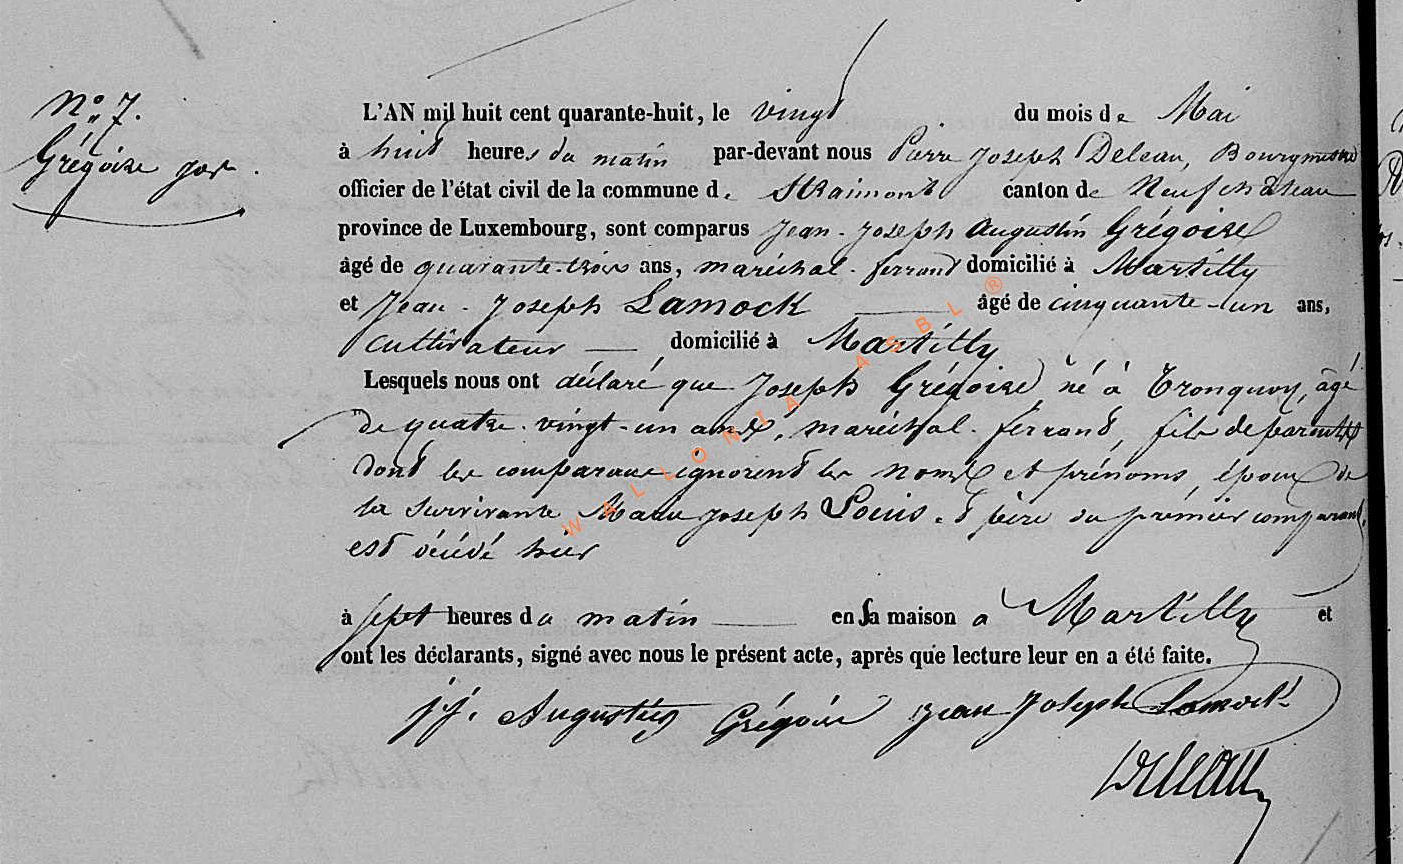 N° 7.
Grégoire jos.
L'AN mil huit cent quarante-huit, le vingt du mois de Mai
à huit heures du matin par-devant nous Pierre Joseph Deleau, Bourgmestre
officier de l'état civil de la commune de Straimont canton de Neufchâteau
province de Luxembourg, sont comparus Jean-Joseph Augustin Grégoire
âgé de quarante-trois ans, maréchal-ferrant domicilié à Martilly
et Jean-Joseph Lamock âgé de cinquante-un ans,
cultivateur domicilié à Martilly
Lesquels nous ont déclaré que Joseph Grégoire né à Tronquoy, âgé
de quatre-vingt-un ans, maréchal-ferrant, fils de parents
dont les comparants ignorent les noms et prénoms, époux de
la survivante Marie Joseph Louis, et père du prémier comparant,
est décédé hier
à sept heures du matin en sa maison à Martilly et
ont les déclarants, signé avec nous le présent acte, après que lecture leur en a été faite.
j.j. Augustin Grégoire jean joseph Lamock
Deleau
WALLONIA ASBL ®